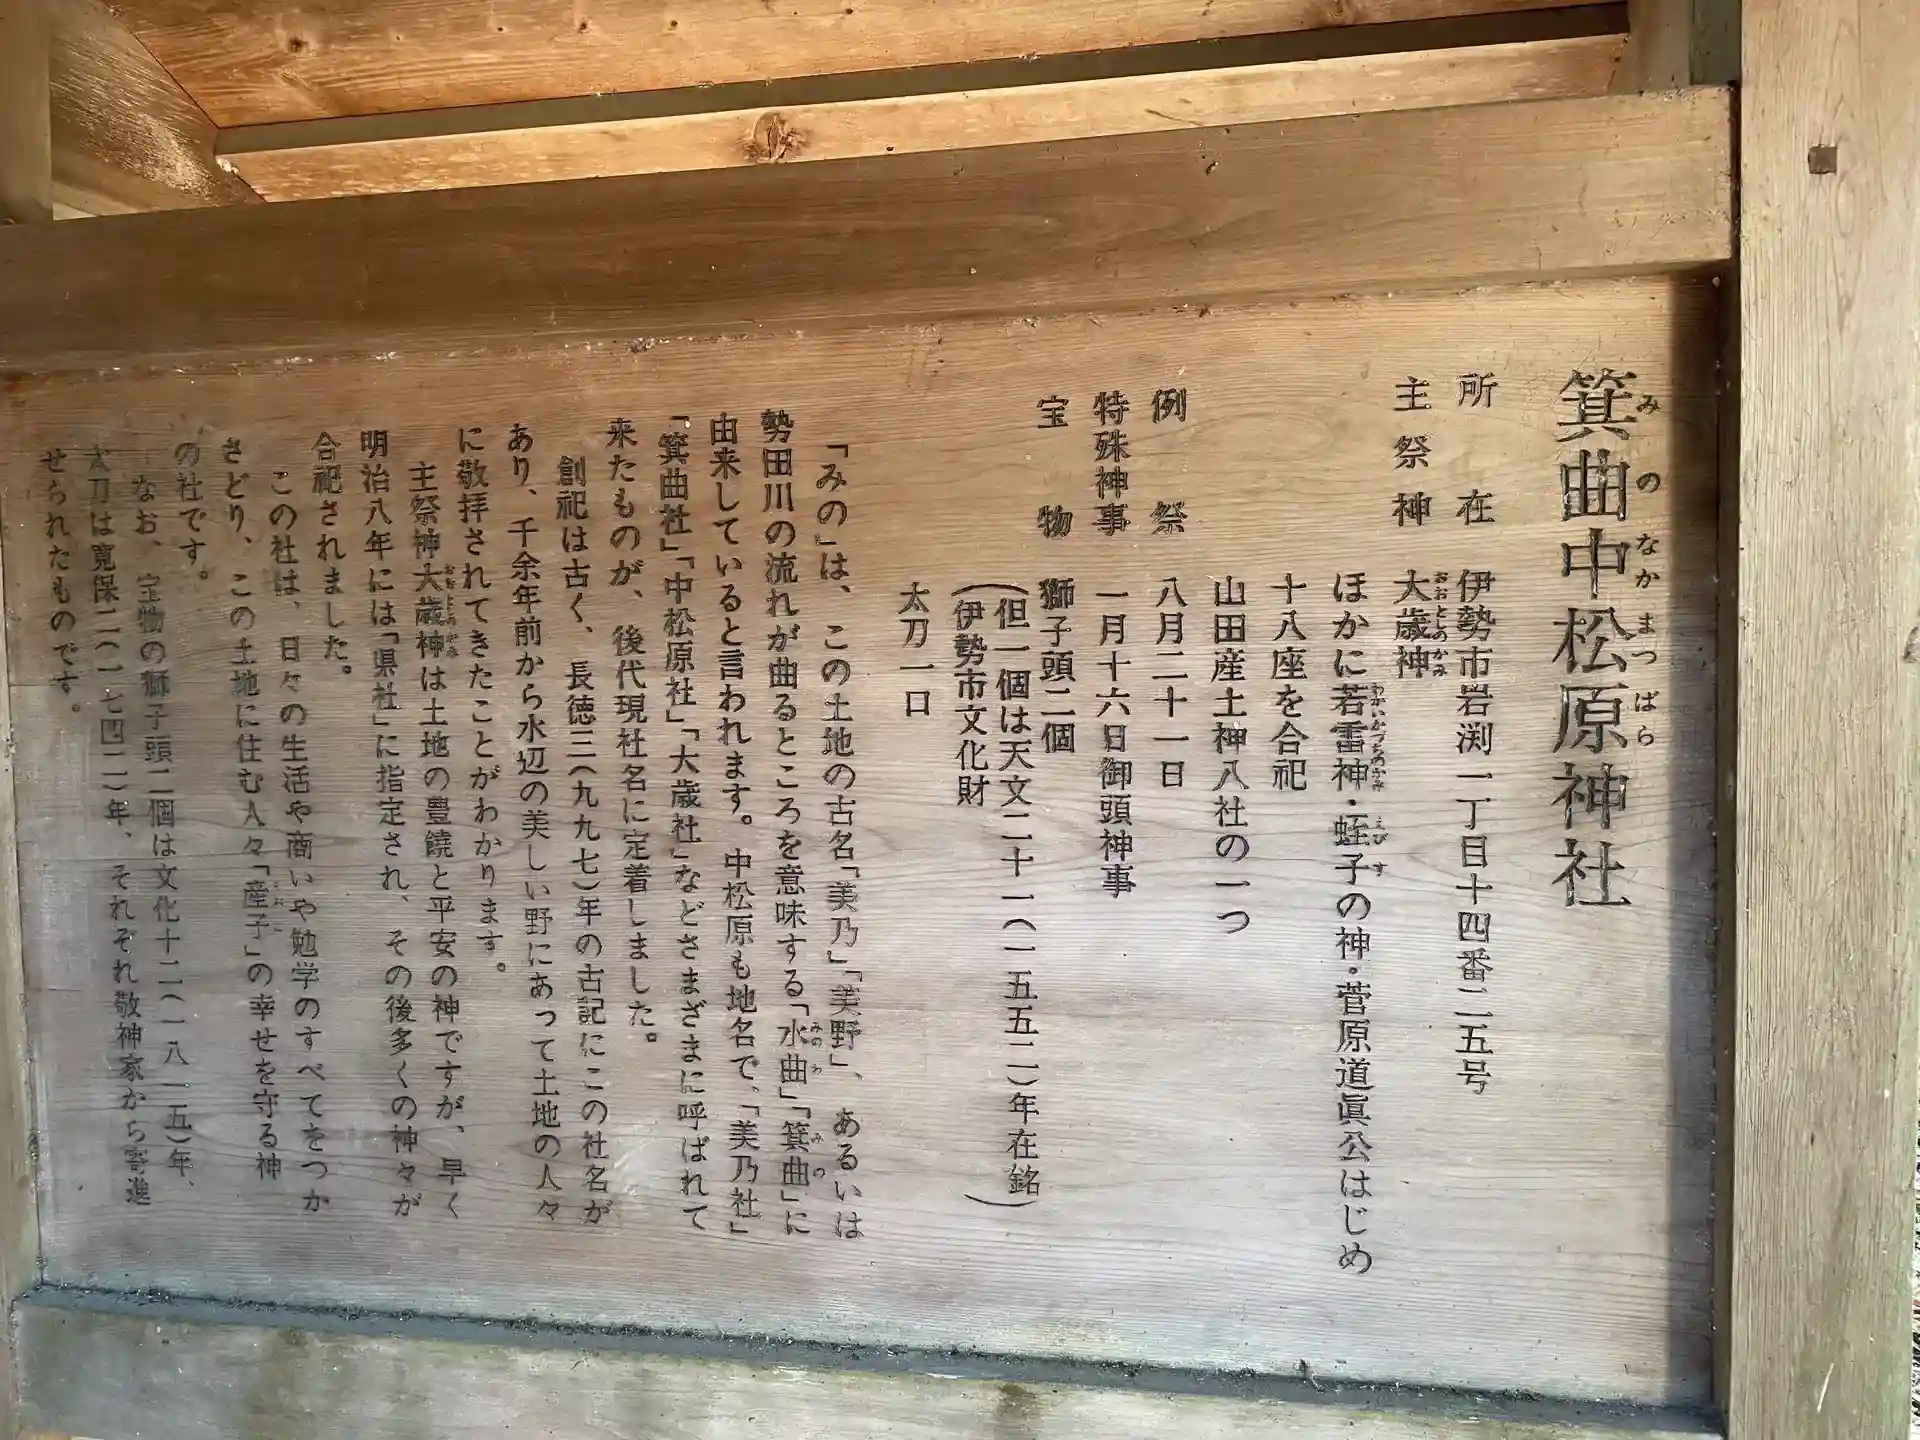 箕曲中松原神社
みのなかまつばら
所在 伊勢市岩渕一丁目十四番二五号
主祭神 大歳神
おおとしのかみ
ほかに若雷神・蛭子の神・菅原道眞公はじめ
わかいかづちのかみ えびす
十八座を合祀
山田産土神八社の一つ
例祭 八月二十一日
特殊神事 一月十六日御頭神事
宝物 獅子頭二個
(但一個は天文二十一(一五五二)年在銘)
(伊勢市文化財)
太刀一口
「みの」は、この土地の古名「美乃」「美野」、あるいは
勢田川の流れが曲るところを意味する「水曲」「箕曲」に
みのわ みの
由来していると言われます。中松原も地名で、「美乃社」
「箕曲社」「中松原社」「大歳社」などさまざまに呼ばれて
来たものが、後代現社名に定着しました。
創祀は古く、長徳三(九九七)年の古記にこの社名が
あり、千余年前から水辺の美しい野にあって土地の人々
に敬拝されてきたことがわかります。
主祭神大歳神は土地の豊饒と平安の神ですが、早く
おおとしのかみ
明治八年には「県社」に指定され、その後多くの神々が
合祀されました。
この社は、日々の生活や商いや勉学のすべてをつか
さどり、この土地に住む人々「産子」の幸せを守る神
の社です。
なお、宝物の獅子頭二個は文化十二(一八一五)年、
太刀は寛保二(一七四二)年、それぞれ敬神家から寄進
せられたものです。